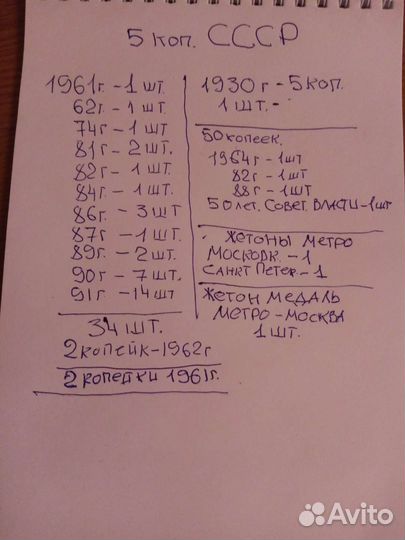 5 коп. СССР
1961г. - 1 шт.
62г. - 1 шт.
74г - 1 шт
81г - 2 шт.
82г - 1 шт.
84г - 1 шт.
86г. - 3 шт
87г - 1 шт.
89г. - 2 шт.
90г - 7 шт.
91г. - 14 шт
34 шт.
2 копейк - 1962г
2 копейки 1961г.
1930г - 5 коп.
1 шт. -
50 копеек.
1964г - 1шт
82г - 1шт
88г - 1шт
50 лет. Совет. Власти - 1шт
Жетоны метро
Московк. - 1
Санкт Петер. - 1
Жетон медаль
метро - Москва
1 шт.
Avito